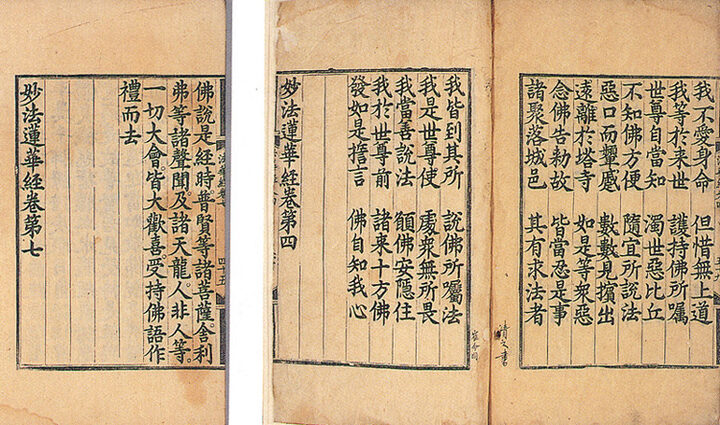 我不愛身命 但惜無上道
我等於來世 護持佛所囑
世尊自當知 濁世惡比丘
不知佛方便 隨宜所說法
惡口而顰蹙 數數見擯出
遠離於塔寺 如是等衆惡
念佛告勑故 皆當忍是事
諸聚落城邑 其有求法者
我皆到其所 說佛所囑法
我是世尊使 處衆無所畏
我當善說法 願佛安隱住
我於世尊前 諸來十方佛
發如是誓言 佛自知我心
妙法蓮華經卷第四
四十五
佛說是經時。普賢等諸菩薩。舍利
弗等諸聲聞。及諸天龍。人非人等。
一切大會。皆大歡喜。受持佛語。作
禮而去
妙法蓮華經卷第七